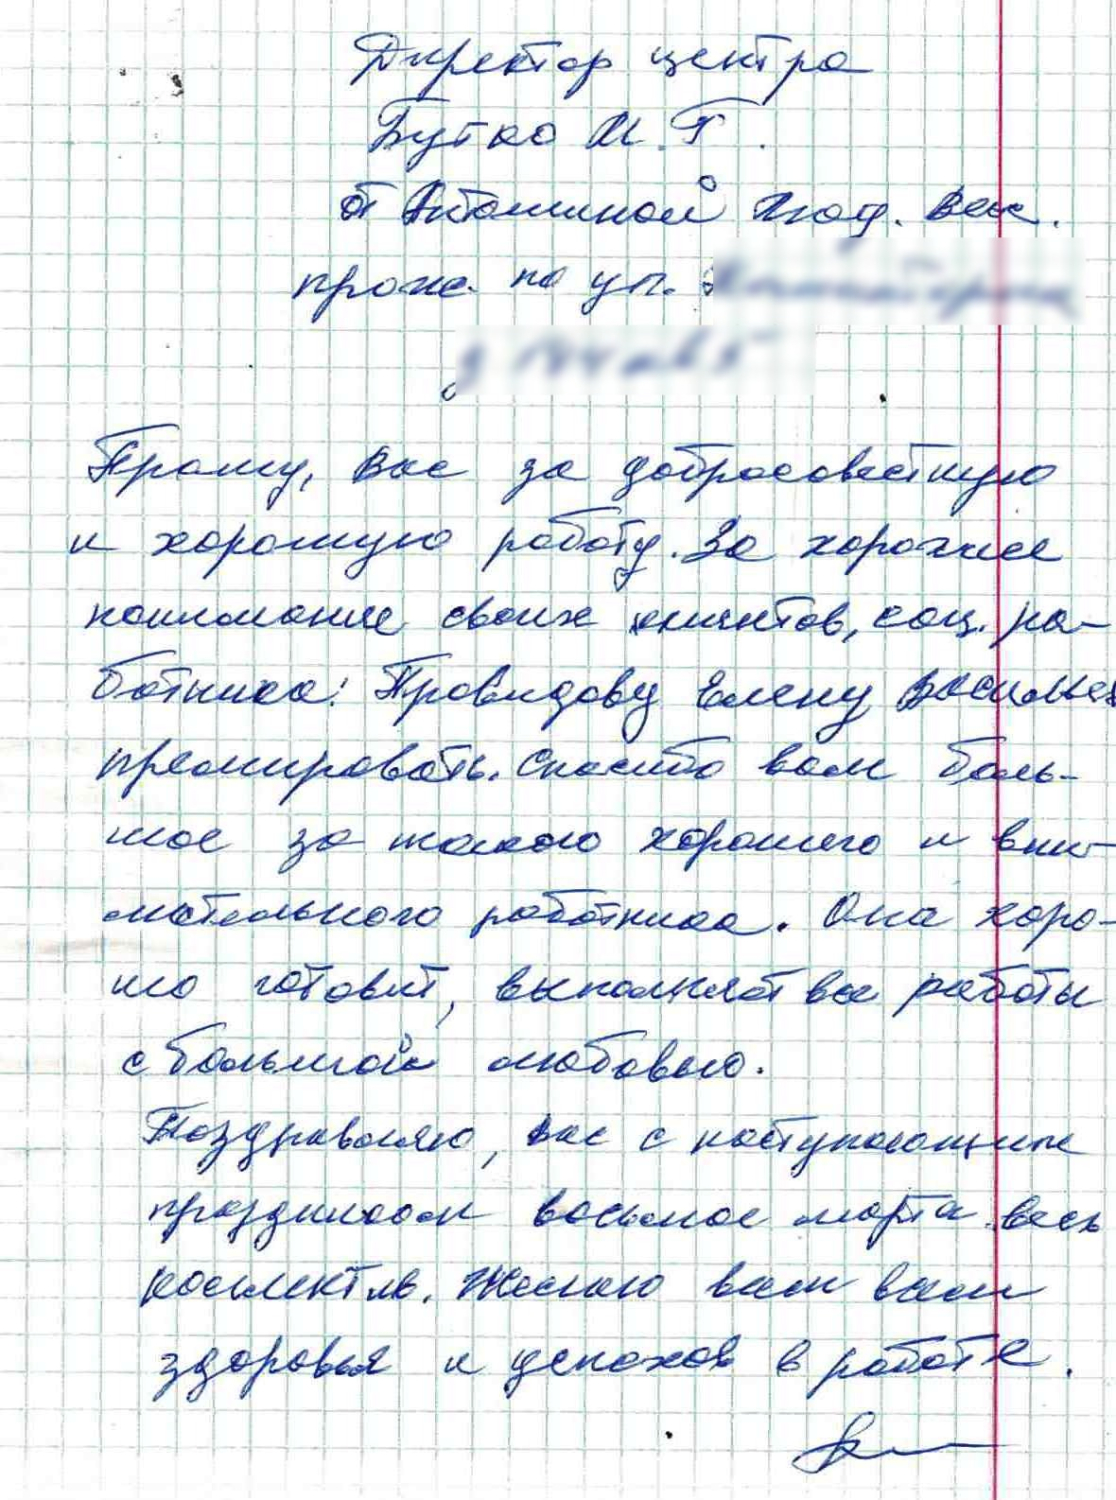 Директор центра
Бутко И.Г.
от Антошиной Люд. Вас.
прож. по ул.
Прошу, Вас за добросовестную
и хорошую работу. За хорошее
понимание своих клиентов, соц. ра-
ботника: Провидову Елену Васильев
премировать. Спасибо вам боль-
шое за такого хорошего и вни-
мательного работника. Она хоро-
шо готовит, выполняет все работы
с большой любовью.
Поздравляю, вас с наступающим
праздником восьмое марта весь
коллектив. Желаю вам всем
здоровья и успехов в работе.